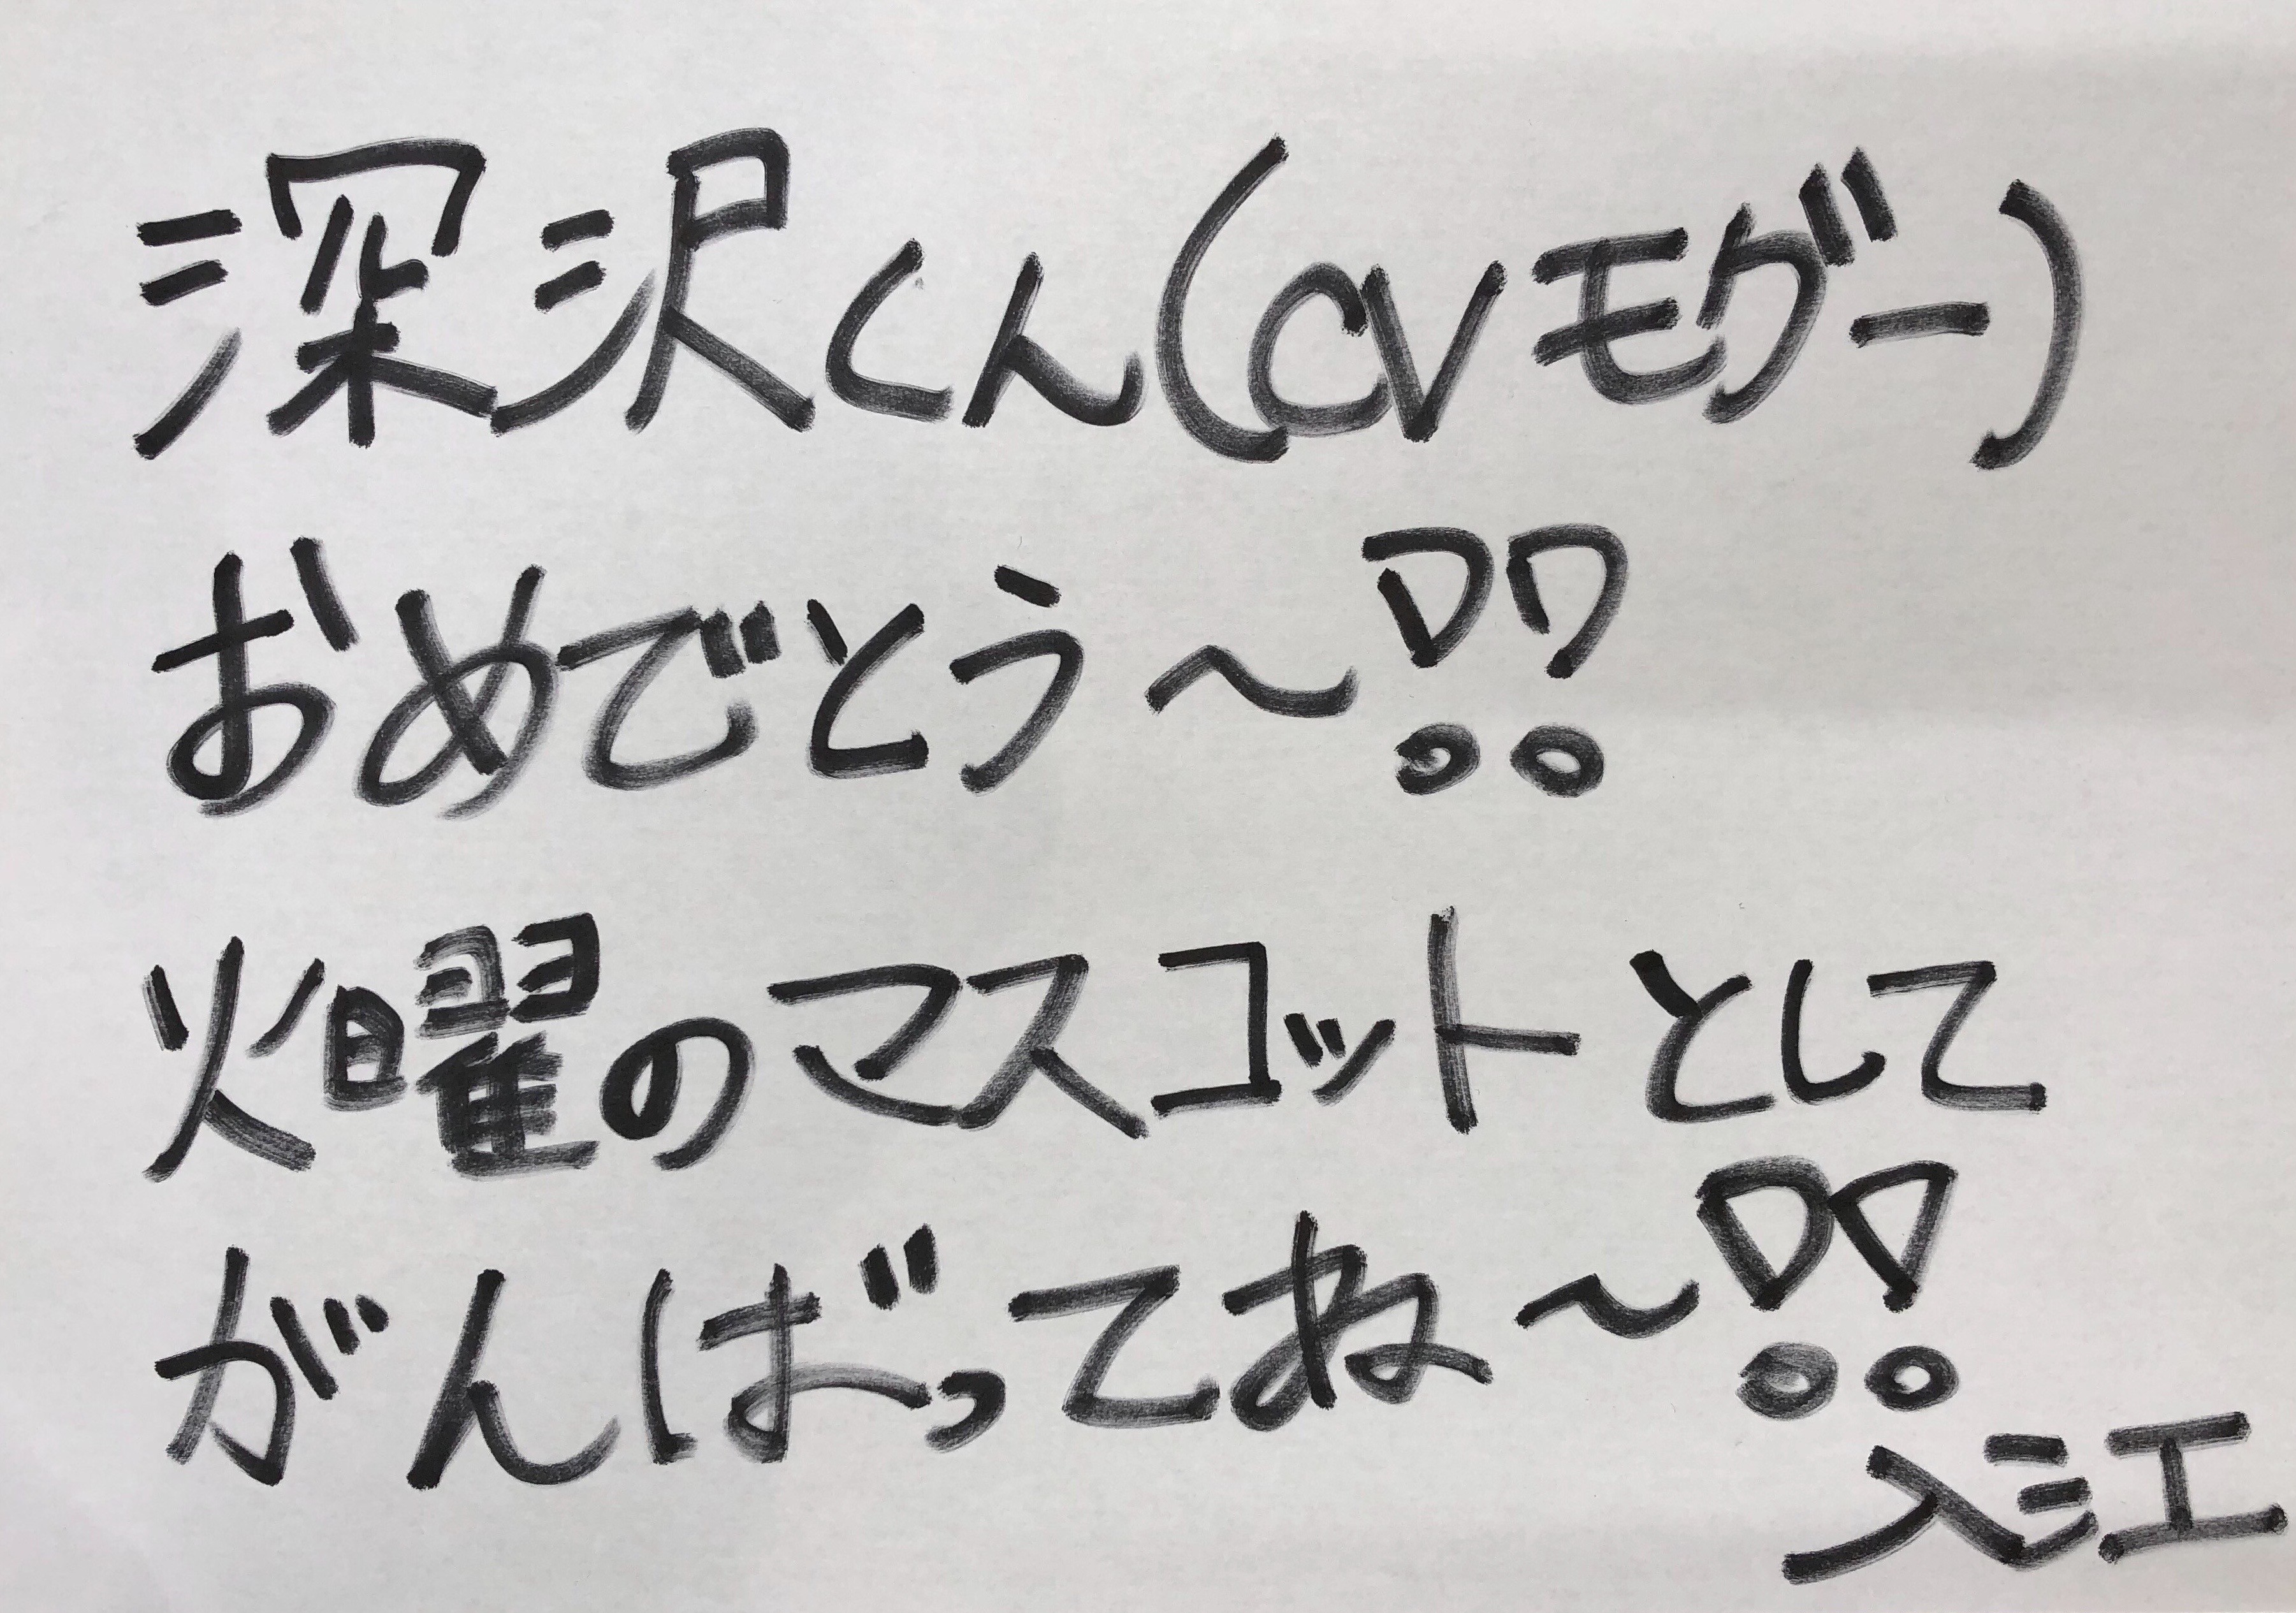 深沢くん(CVモグー)
おめでとう～!!
火曜のマスコットとして
がんばってね～!!
入江